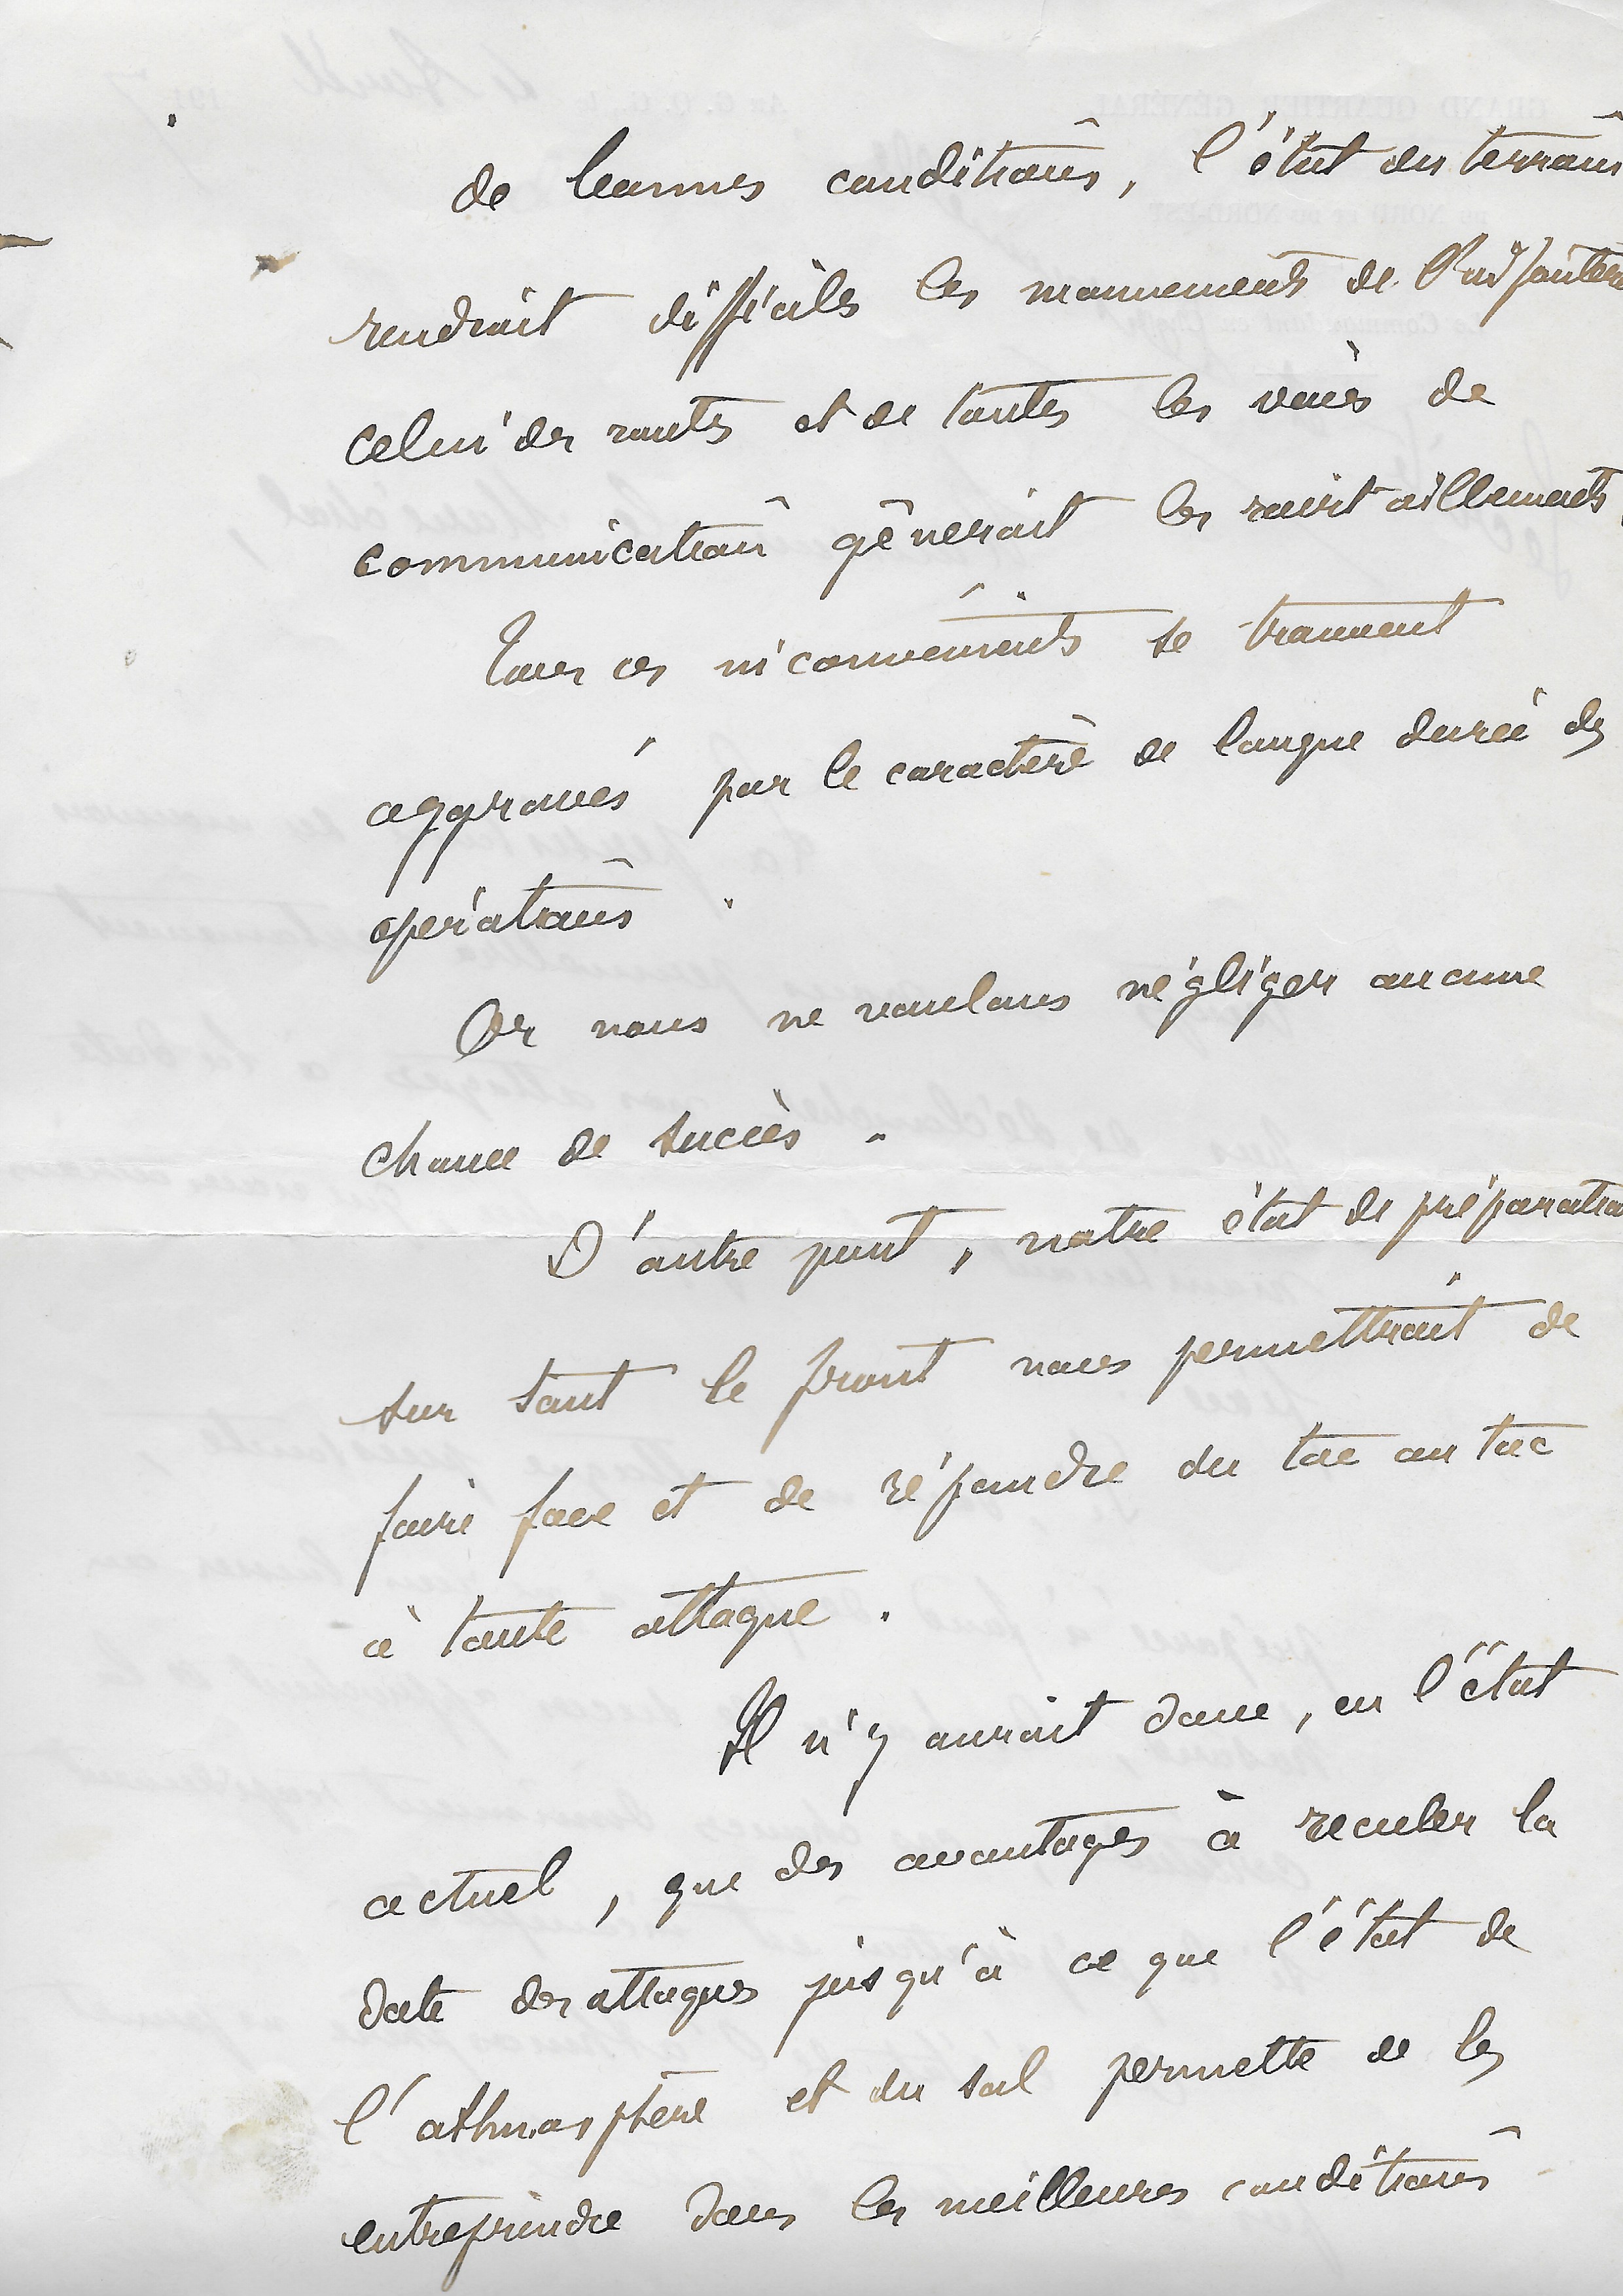 de bonnes conditions, l'état des terrains
rendrait difficiles les mouvements de l'infanterie
celui des routes et de toutes les voies de
communication gênerait les ravitaillements.
Tous ces inconvénients se trouvent
aggravés par le caractère de longue durée des
opérations.
Or nous ne voulons négliger aucune
chance de succès.
D'autre part, notre état de préparation
sur tout le front nous permettrait de
faire face et de répondre du tac au tac
à toute attaque.
Il n'y aurait donc, en l'état
actuel, que des avantages à reculer la
date des attaques jusqu'à ce que l'état de
l'athmosphère et du sol permette de les
entreprendre dans les meilleures conditions